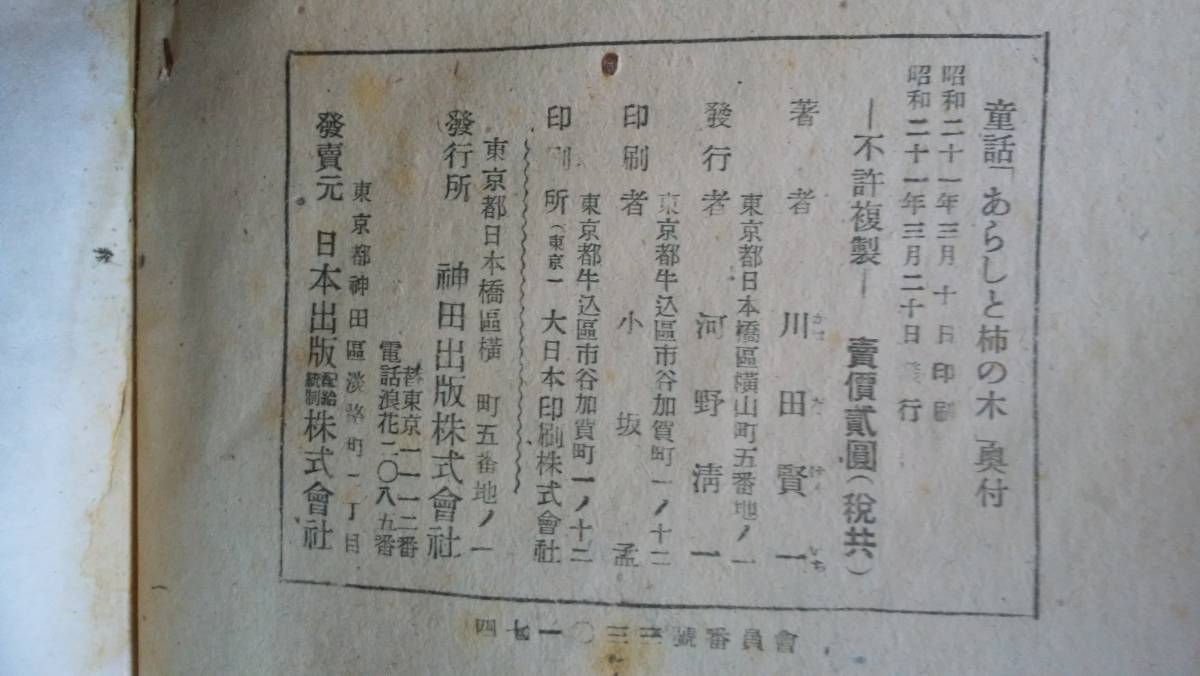 童話「あらしと柿の木」奥付
昭和二十一年三月十日印刷
昭和二十一年三月二十日發行
―不許複製― 賣價貳圓(稅共)
著者 川田賢一
東京都日本橋區橫山町五番地ノ一
發行者 河野淸一
東京都牛込區市谷加賀町一ノ十二
印刷者 小坂孟
東京都牛込區市谷加賀町一ノ十二
印刷所(東京一 大日本印刷株式會社
東京都日本橋區橫 町五番地ノ一
發行所 神田出版株式會社
替東京一一一二番
電話浪花二〇八五番
東京都神田區淡路町二丁目
發賣元 日本出版配給統制株式會社
會員番號